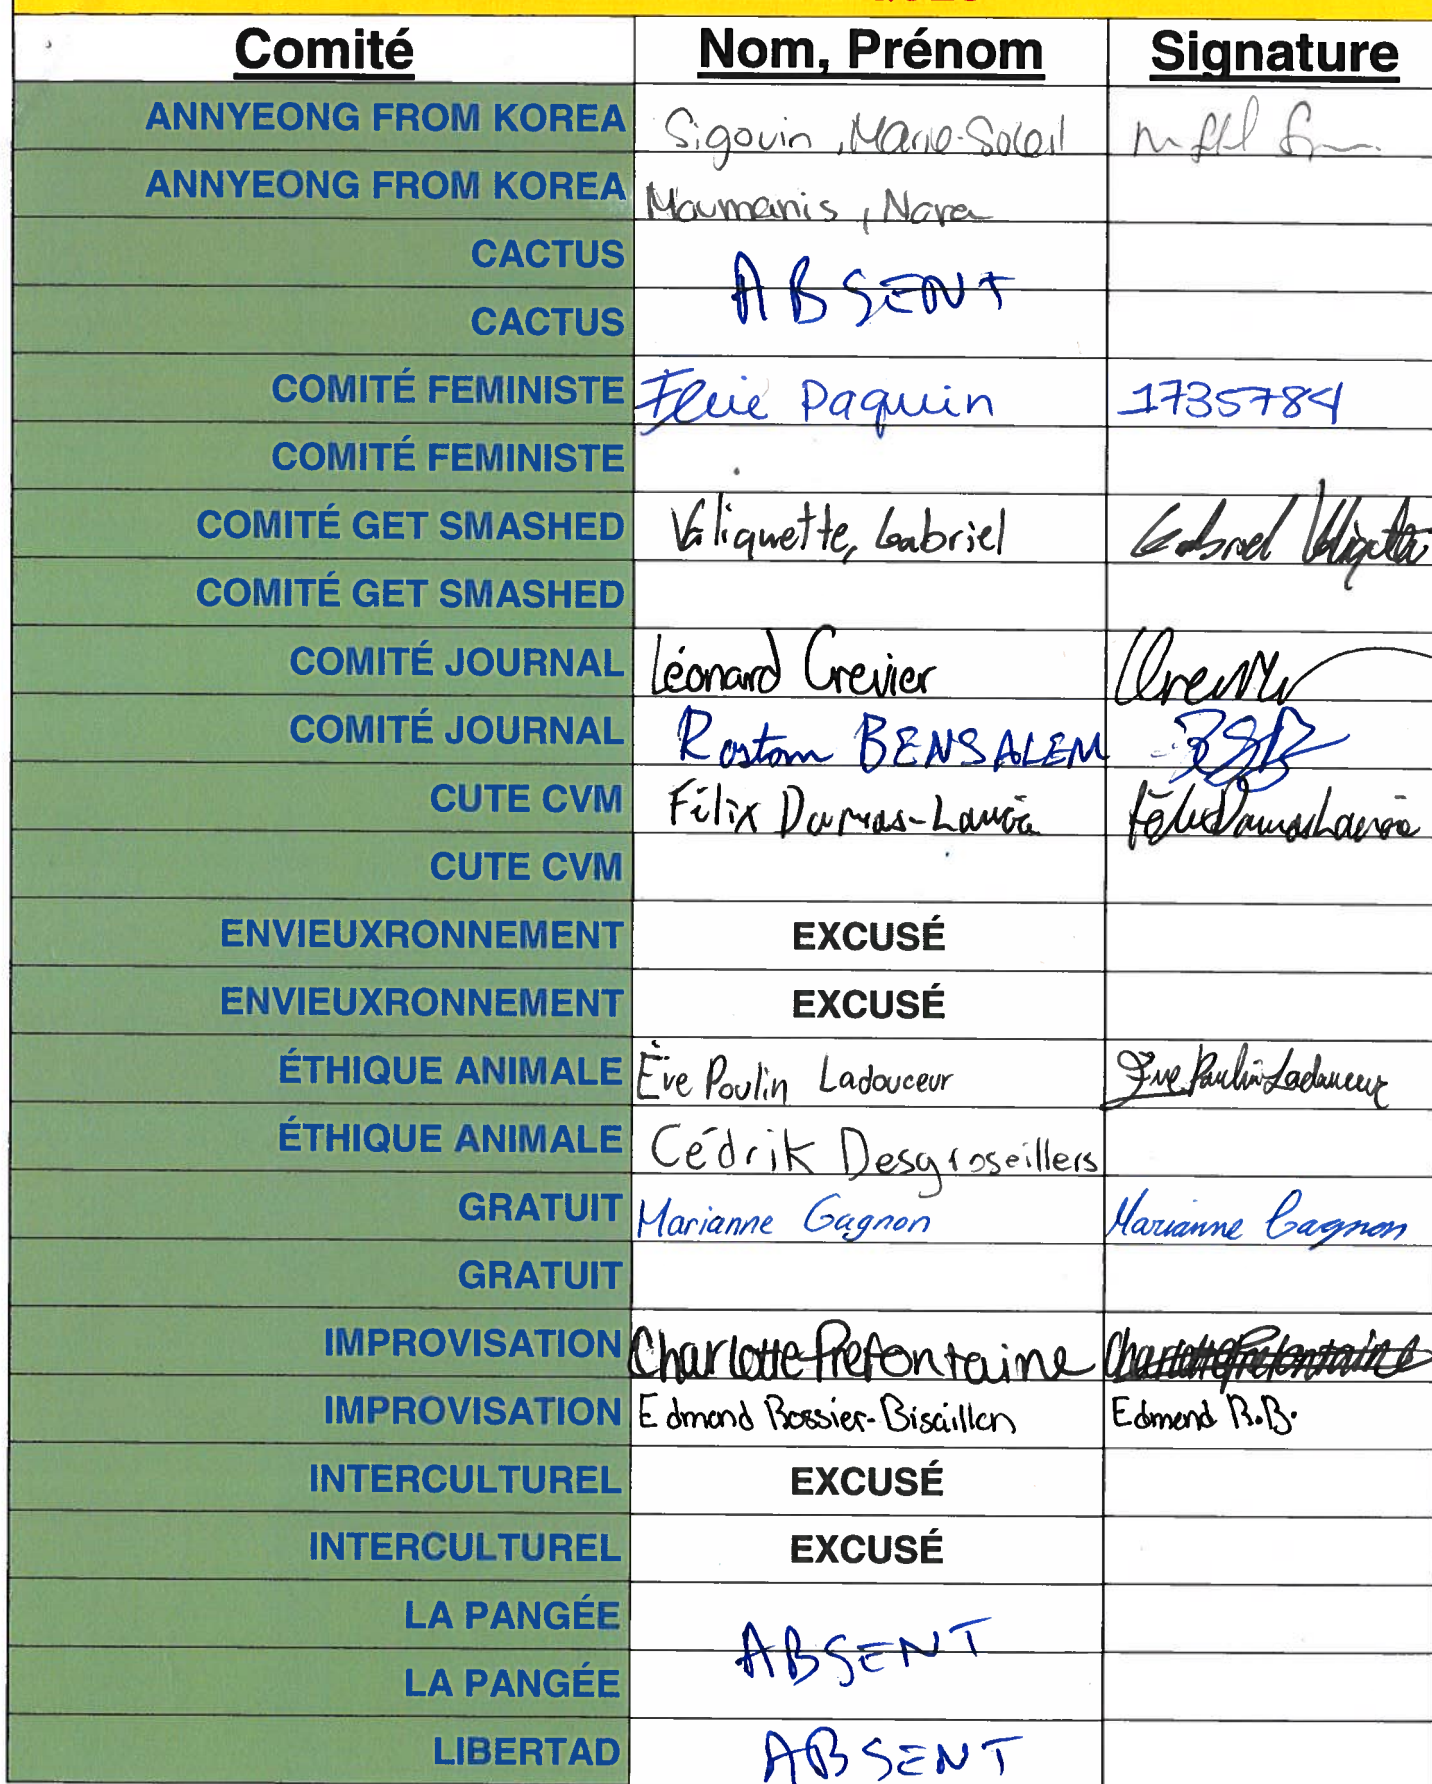 Comité Nom, Prénom Signature
ANNYEONG FROM KOREA Sigouin, Marie-Soleil
ANNYEONG FROM KOREA Moumanis, Nora
CACTUS
ABSENT
CACTUS
COMITÉ FEMINISTE Paquin 1735784
COMITÉ FEMINISTE
COMITÉ GET SMASHED Valiquette, Gabriel Gabriel Valiquette
COMITÉ GET SMASHED
COMITÉ JOURNAL Léonard Crevier Crevier
COMITÉ JOURNAL Rostom BENSALEM
CUTE CVM Félix Dumas-Lavoie Félix Dumas Lavoie
CUTE CVM
ENVIEUXRONNEMENT EXCUSÉ
ENVIEUXRONNEMENT EXCUSÉ
ÉTHIQUE ANIMALE Ève Poulin Ladouceur Ève Poulin Ladouceur
ÉTHIQUE ANIMALE Cédrik Desgroseillers
GRATUIT Marianne Gagnon Marianne Gagnon
GRATUIT
IMPROVISATION Charlotte Prefontaine Charlotte Prefontaine
IMPROVISATION Edmond Rossier-Bisaillon Edmond R.B.
INTERCULTUREL EXCUSÉ
INTERCULTUREL EXCUSÉ
LA PANGÉE
ABSENT
LA PANGÉE
LIBERTAD ABSENT